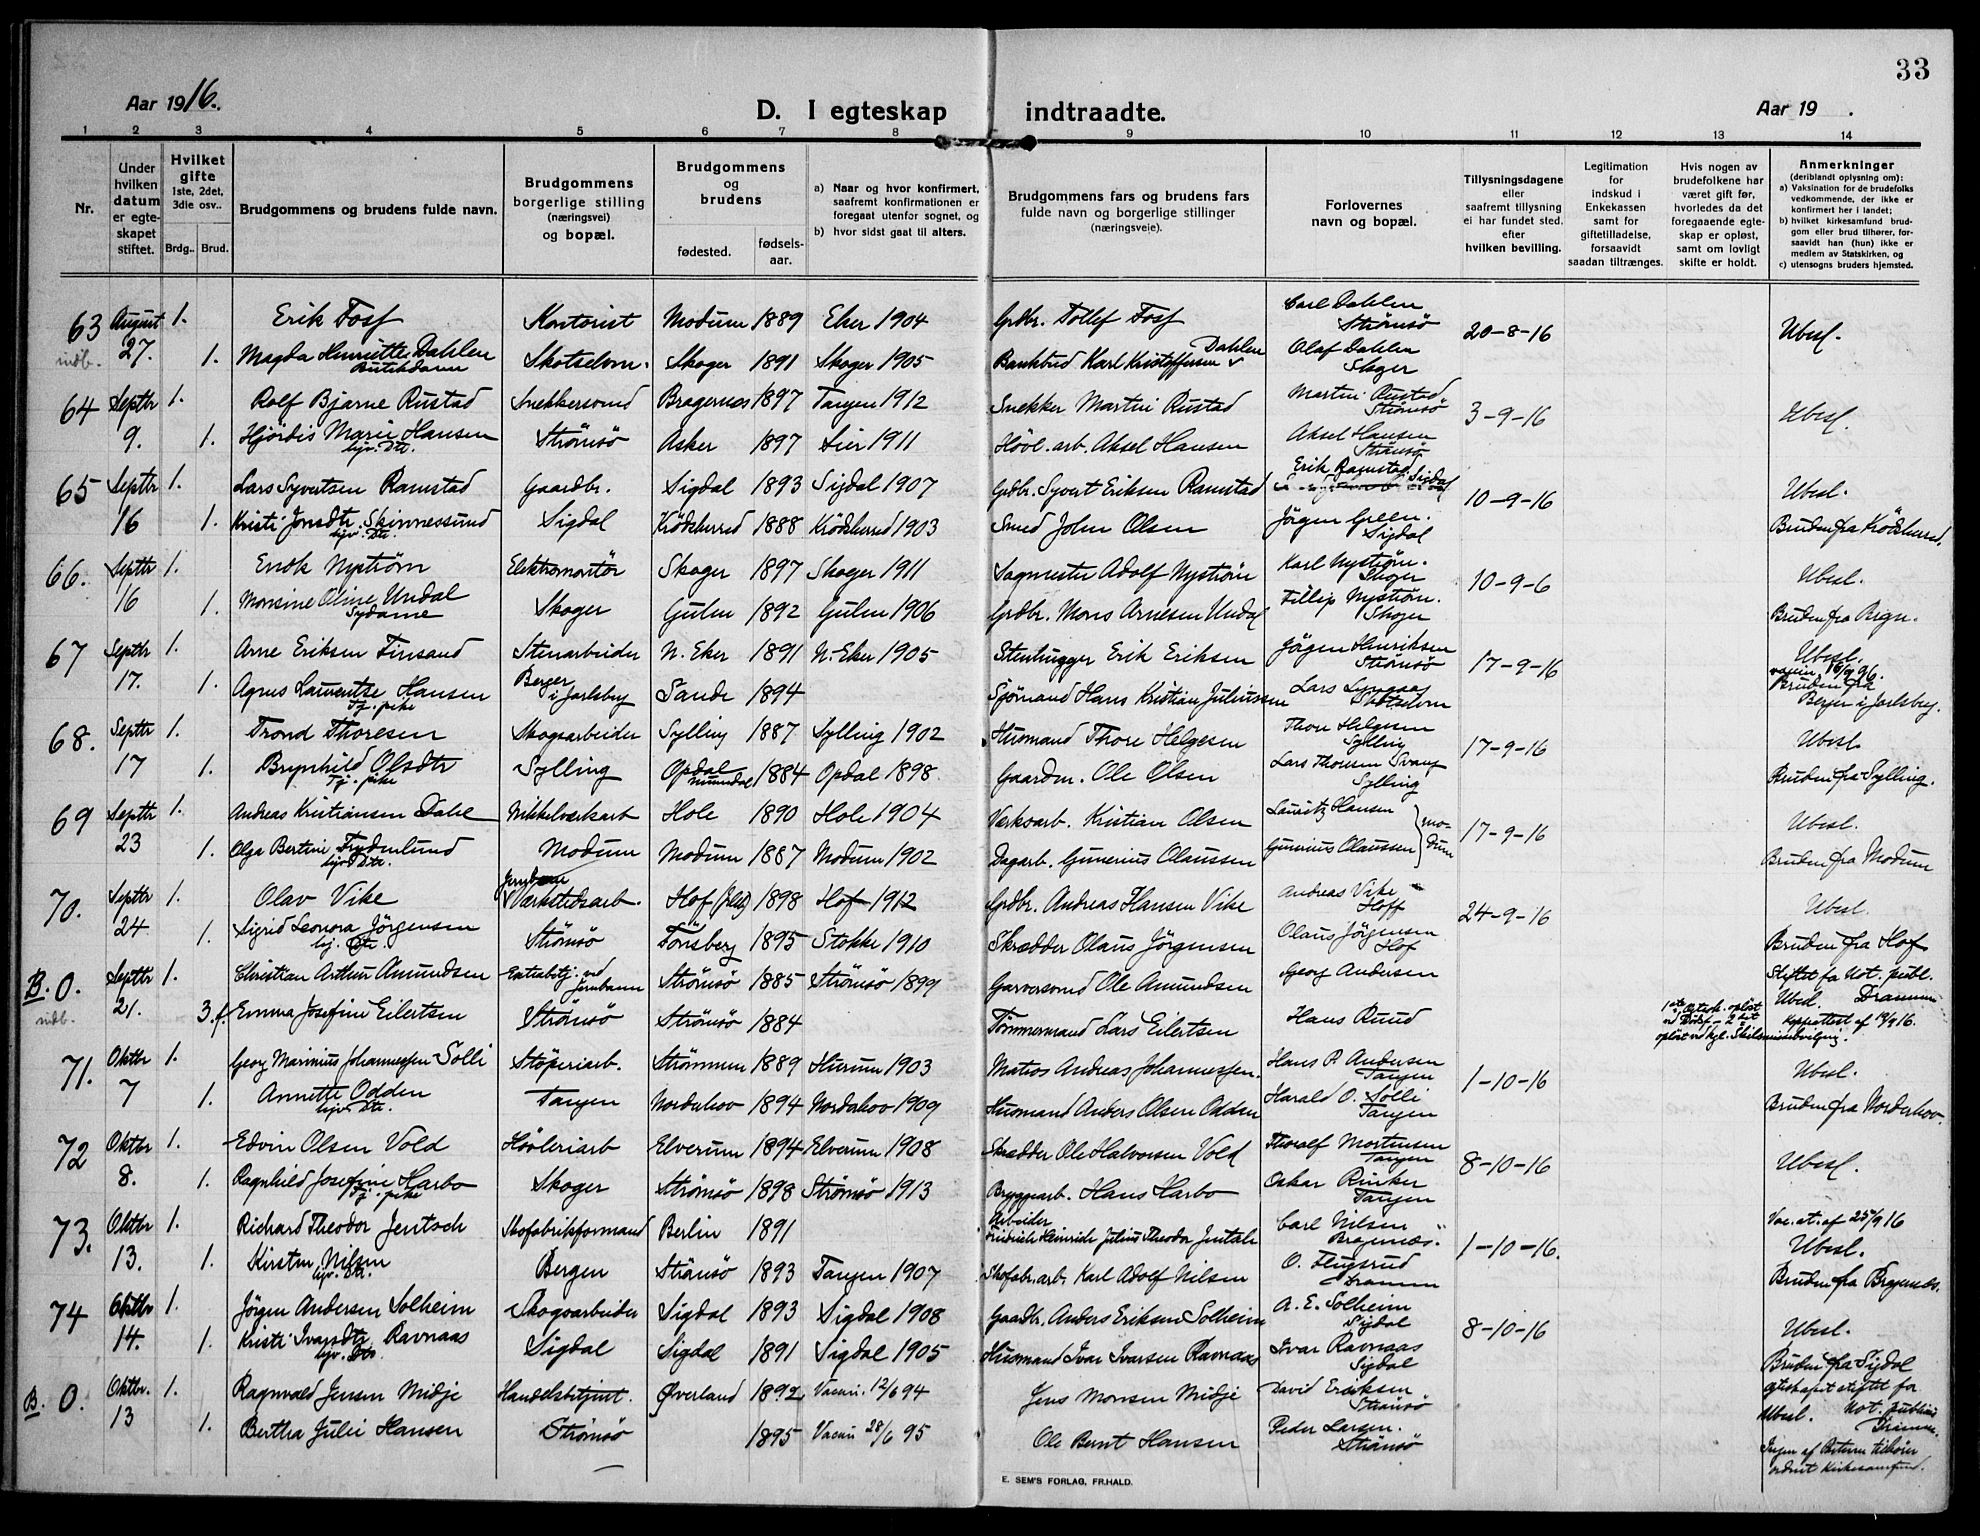 33
Aar 1916.
D. I egteskap indtraadte.
Aar 19 .
1 2 3 4 5 6 7 8 9 10 11 12 13 14
Nr.
Under hvilken datum er egteskapet stiftet.
Hvilket gifte
1ste, 2det, 3die osv..
Brdg.. Brud.
Brudgommens og brudens fulde navn.
Brudgommens borgerlige stilling (næringsvei) og bopæl.
Brudgommens og brudens
fødested. fødselsaar.
a) Naar og hvor konfirmert, saafremt konfirmationen er foregaat utenfor sognet, og
b) hvor sidst gaat til alters.
Brudgommens fars og brudens fars fulde navn og borgerlige stillinger (næringsveie).
Forlovernes navn og bopæl.
Tillysningsdagene eller saafremt tillysning ei har fundet sted. efter hvilken bevilling.
Legitimation for indskud i Enkekassen samt for giftetilladelse, forsaavidt saadan tiltrænges.
Hvis nogen av brudefolkene har været gift før, hvorledes da det foregaaende egteskap er opløst, samt om lovligt skifte er holdt.
Anmerkninger
(deriblandt oplysning om):
a) Vaksination for de brudefolks vedkommende, der ikke er konfirmert her i landet;
b) hvilket kirkesamfund brudgom eller brud tilhører, forsaavidt han (hun) ikke er medlem av Statskirken, og
c) utensogns bruders hjemsted.
63 August 1. Erik Foss Kontorist Modum 1889 Eker 1904 Grdbr. Tollef Foss Carl Dahlen Strømsö 20-8-16 Ubesl.
indb. 27. 1. Magda Henriette Dahlen Skotselven. Skoger 1891 Skoger 1905 Bankbud Karl Kristoffersen Dahlen Olaf Dahlen Skoger
64 Septbr 1. Rolf Bjarne Rustad Snekkersvend Bragernes 1897 Tangen 1912 Snekker Martin Rustad Martin Rustad Strømsö 3-9-16 Ubesl.
9. 1. Hjördis Marie Hansen Strömsö Asker 1897 Lier 1911 Hövl. arb. Aksel Hansen Aksel Hansen Strömsö
65 Septbr 1. Lars Syvertsen Ramstad Gaardbr. Sigdal 1893 Sigdal 1907 Grdbr. Syvert Eriksen Ramstad Erik Ramstad Sigdal 10-9-16 Ubesl.
16 1. Kristi Jonsdtr. Skinnessund Sigdal Krödsherred 1888 Krödsherred 1903 Smed John Olsen Jörgen Green. Sigdal Bruden fra Krödsherred.
66. Septbr 1. Enok Nyström Elektromontör Skoger 1897 Skoger 1911 Sagmester Adolf Nyström Karl Nyström. Skoger 10-9-6 Ubesl.
16 1. Monsine Oline Undal Sydame Skoger Gulen 1892 Gulen 1906 Grdbr. Mons Arnesen Undal Fillip Nyström. Skoger Bruden fra
67 Septbr 1. Arne Eriksen Finsand Stenarbeider N. Eker 1891 N. Eker 1905 Stenhugger Erik Eriksen Jörgen Henriksen Strømsö 17-9-16 Ubesl.
17. 1. Agnes Lauentse Hansen Tj. pike Berger i Jarlsberg Sande 1894 Sjömand Hans Kristian Juliussen Lars Skotselven Bruden fra Berger i Jarlsberg.
68. Septbr 1. Trond Thoresen Skogsarbeider Sylling 1887 Sylling 1902 Husmand Thore Helgesen Thore Helgesen Sylling 17-9-16 Ubesl.
17 1. Brynhild Olsdtr Tj. pike Sylling Opdal Numedal 1884 Opdal 1898. Gaardm. Ole Olsen Lars Thoresen Svang Sylling Bruden fra Sylling.
69 Septbr 1. Andreas Kristiansen Dahl Nikkelverksarb Hole 1890 Hole 1904 Verksarb. Kristian Olsen Lauritz Hansen 17-9-16 Ubesl.
23 1. Olga Bertine Frydenlund Modum Modum 1887 Modum 1902 Dagarb. Gunerius Olaussen Gunerius Olaussen Modum Bruden fra Modum
70. Septbr 1. Olav Vike Jernbane Værkstedsarb. Hof (Jlsb) 1898 Hof 1912 Grdbr. Andreas Hansen Vike Andreas Vike Hoff 24-9-16 Ubesl.
24 1. Sigrid Leonora Jörgensen Strömsö Tönsberg 1895 Stokke 1910 Skrædder Olaus Jörgensen Olaus Jörgensen Hof Bruden fra Hof
B. O. Septbr 1. Christian Arthur Amundsen Jernbanen Strömsö 1885 Strömsö 1899 Garversvend Ole Amundsen Georg Andersen Stiftet fa Not. publ. Drammen
indb. 21. 3. f. Emma Josefine Eilertsen Strömsö Strömsö 1884 Tömmermand Lars Eilertsen Hans Ruud Ubesl.
71. Oktbr 1. Georg Marinius Johannessen Solli Stöperiarb. Strömmen 1889 Hurum 1903 Matros Andreas Johannessen. Hans P. Andersen Tangen 1-10-16 Ubesl.
7 1. Annette Odden Tangen Norderhov 1894 Norderhov 1909 Husmand Anders Olsen Odden Harald O. Solli Tangen Bruden fra Norderhov.
72 Oktbr 1. Edvin Olsen Vold Hövleriarb Elverum 1894 Elverum 1908 Skrædder Ole Halvorsen Vold Thoralf Mortensen Tangen 8-10-16 Ubesl.
8. 1. Ragnhild Josefine Harbo Tj. pike Skoger Strömsö 1898 Strömsö 1913 Bryggearb. Hans Harbo Oskar Rinker Tangen
73. Oktbr 1. Richard Theodor Jentsch Skofabrikformand Berlin 1891 Arbeider Friedrich Heinrich Julius Theodor Jentsch Carl Nilsen Bragernæs. 1-10-16. Vac. at. af 25/9 16 Ubesl.
13. 1. Kirsten Nilsen Bergen Strömsö 1893 Tangen 1907 Skofabr. arb. Karl Adolf Nilsen O. Flugsrud Drammen Bruden fra Bragernæs.
74 Oktbr 1. Jörgen Andersen Solheim Skogsarbeider Sigdal 1893 Sigdal 1908 Gaardbr. Anders Eriksen Solheim A. E. Solheim Sigdal 8-10-16 Ubesl.
14. 1. Kristi Ivarsdtr. Ravnaas Sigdal Sigdal 1891 Sigdal 1905 Husmand Ivar Ivarsen Ravnaas Ivar Ravnaas Sigdal Bruden fra Sigdal
B. O. Oktbr. 1. Ragnvald Jensen Midje Handelsbetjent. Øverland 1892 Vaccin. 12/6 94 Jens Monsen Midje David Eriksen Strømsö egteskapet stiftet for Not. publicus Drammen. Ubesl.
13 1. Bertha Julie Hansen Strömsö 1895 Vaccin 28/6 95 Ole Bernt Hansen Peder Larsen. Strömsö Ingen af Parterne tilhører ordnet Kirkesamfund.
E. SEM'S FORLAG, FR.HALD.